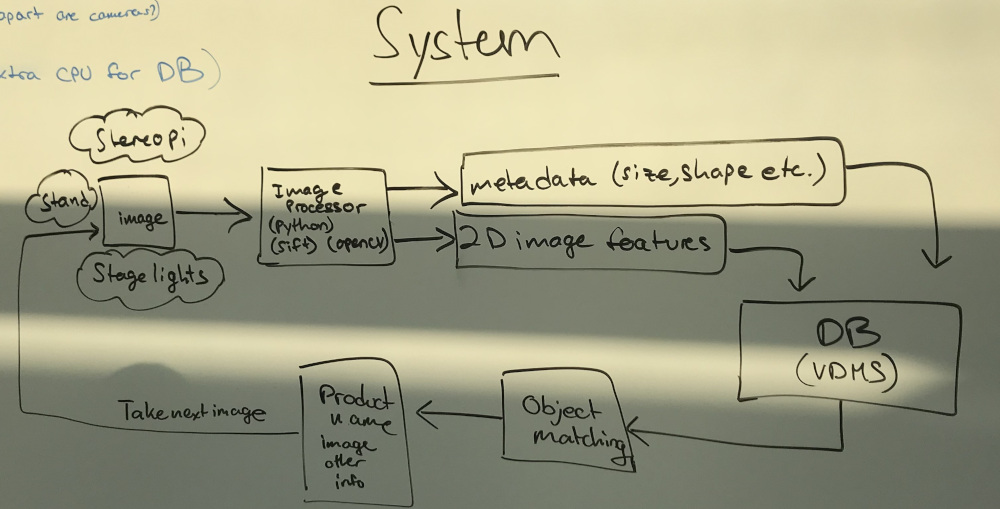 apart are cameras?)
System
xtra CPU for DB)
Stereopi
Stand
image
Stage lights
Image
Processor
(Python)
(sift) (opencv)
metadata (size, shape etc.)
2D image features
DB
(VDMS)
Object
matching
Product
name
image
other
info
Take next image